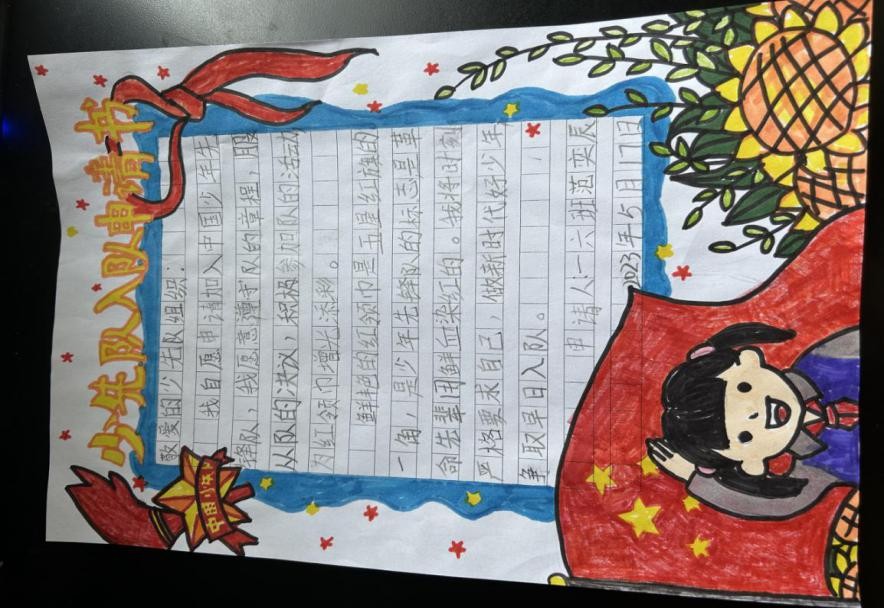 少先队入队申请书
敬爱的少先队组织：
我自愿申请加入中国少年先
锋队，我愿意遵守队的章程，服
从队的决议，积极参加队的活动
为红领巾增光添彩。
鲜艳的红领巾是五星红旗的
一角，是少年先锋队的标志是革
命先辈用鲜血染红的。我将时刻
严格要求自己，做新时代好少年
争取早日入队。
申请人：一六班范奕辰
2023年5月17日
中国少先队